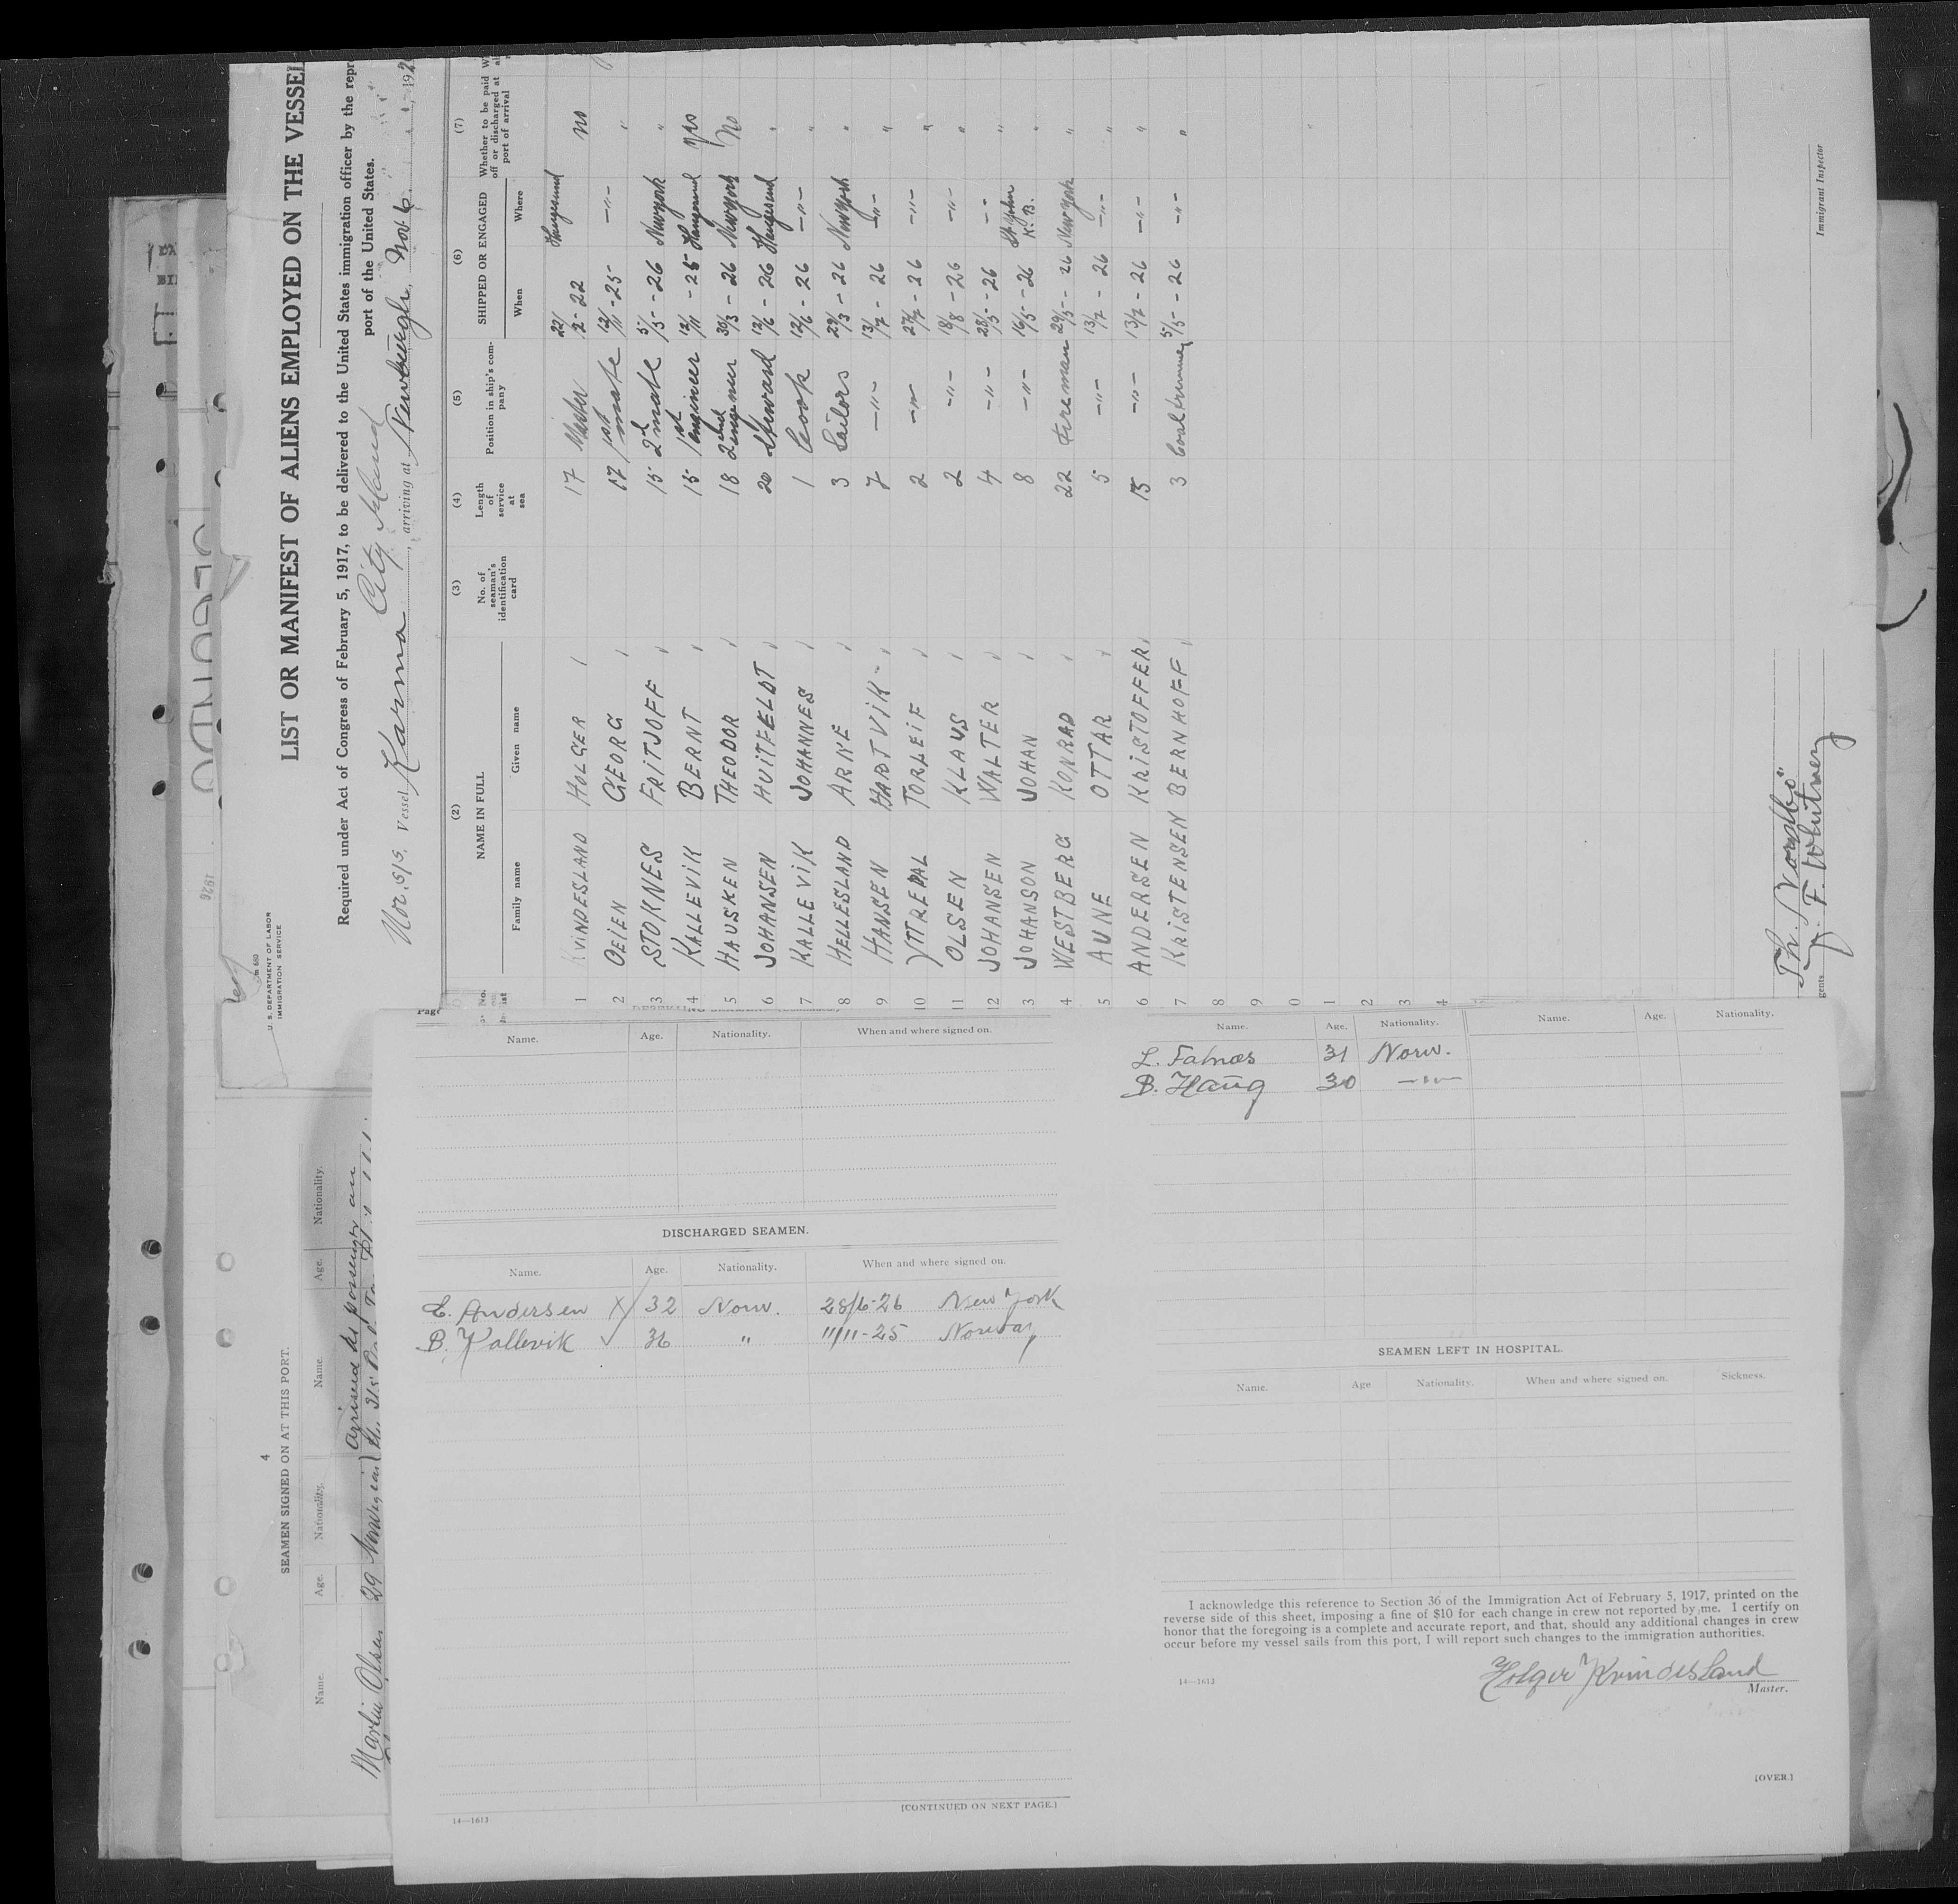 U. S. DEPARTMENT OF LABOR
IMMIGRATION SERVICE
LIST OR MANIFEST OF ALIENS EMPLOYED ON THE VESSEL
Required under Act of Congress of February 5, 1917, to be delivered to the United States immigration officer by the repr
port of the United States.
City Island
Nor. S/S. Vessel Karmo, arriving at Newburgh, Nov 6. 192
(2) (3) (4) (5) (6) (7)
NAME IN FULL
Family name Given name
No. of seaman's identification card
Length of service at sea
Position in ship's company
SHIPPED OR ENGAGED
When Where
Whether to be paid off or discharged at port of arrival
1 KVINDESLAND HOLGER 17 Master 22/2-22 Haugesund no
2 OEIEN GEORG 17 1st mate 12/11-25 -"- "
3 STOKNES FRITJOFF 15 2d mate 5/5-26 Newyork "
4 KALLEVIK BERNT 15 1st engineer 12/11-25 Haugesund yes
5 HAUSKEN THEODOR 18 2nd engineer 30/3-26 Newyork No
6 JOHANSEN HUITFELDT 20 Steward 12/6-26 Haugesund "
7 KALLEVIK JOHANNES 1 Cook 12/6-26 -"- "
8 HELLESLAND ARNE 3 Sailors 29/3-26 Newyork "
9 HANSEN HARTVIK 7 -"- 13/7-26 -"- "
10 YTTREDAL TORLEIF 2 -"- 27/7-26 -"- "
11 OLSEN KLAUS 2 -"- 18/8-26 -"- "
12 JOHANSEN WALTER 4 -"- 28/5-26 -- "
3 JOHANSON JOHAN 8 -"- 16/5-26 St Stephen "
4 WESTBERG KONRAD 22 Fireman 29/5-26 Newyork "
5 AUNE OTTAR 5 -"- 13/7-26 -"- "
6 ANDERSEN KRISTOFFER 15 -"- 13/7-26 -"- "
7 KRISTENSEN BERNHOFF 3 Coaltrimmer 5/5-26 -"- "
8
9
0
1
2
3
4
Immigrant Inspector
J. F. Whitney
4
SEAMEN SIGNED ON AT THIS PORT.
Name. Age. Nationality. Name. Age. Nationality.
Martin Olsen 29 Norwegian arrived as passenger
Name. Age. Nationality. When and where signed on.
DISCHARGED SEAMEN.
Name. Age. Nationality. When and where signed on.
C. Andersen X 32 Norw. 28/6-26 New York
B. Kallevik ✓ 36 " 11/11-25 Norway
[CONTINUED ON NEXT PAGE.]
14—1613
Name. Age. Nationality. Name. Age. Nationality.
L. Falnæs 31 Norw.
B. Haug 30 -"-
SEAMEN LEFT IN HOSPITAL.
Name. Age Nationality. When and where signed on. Sickness.
I acknowledge this reference to Section 36 of the Immigration Act of February 5, 1917, printed on the
reverse side of this sheet, imposing a fine of $10 for each change in crew not reported by me. I certify on
honor that the foregoing is a complete and accurate report, and that, should any additional changes in crew
occur before my vessel sails from this port, I will report such changes to the immigration authorities.
Holger Kvindesland
Master.
14—1613
[OVER.]